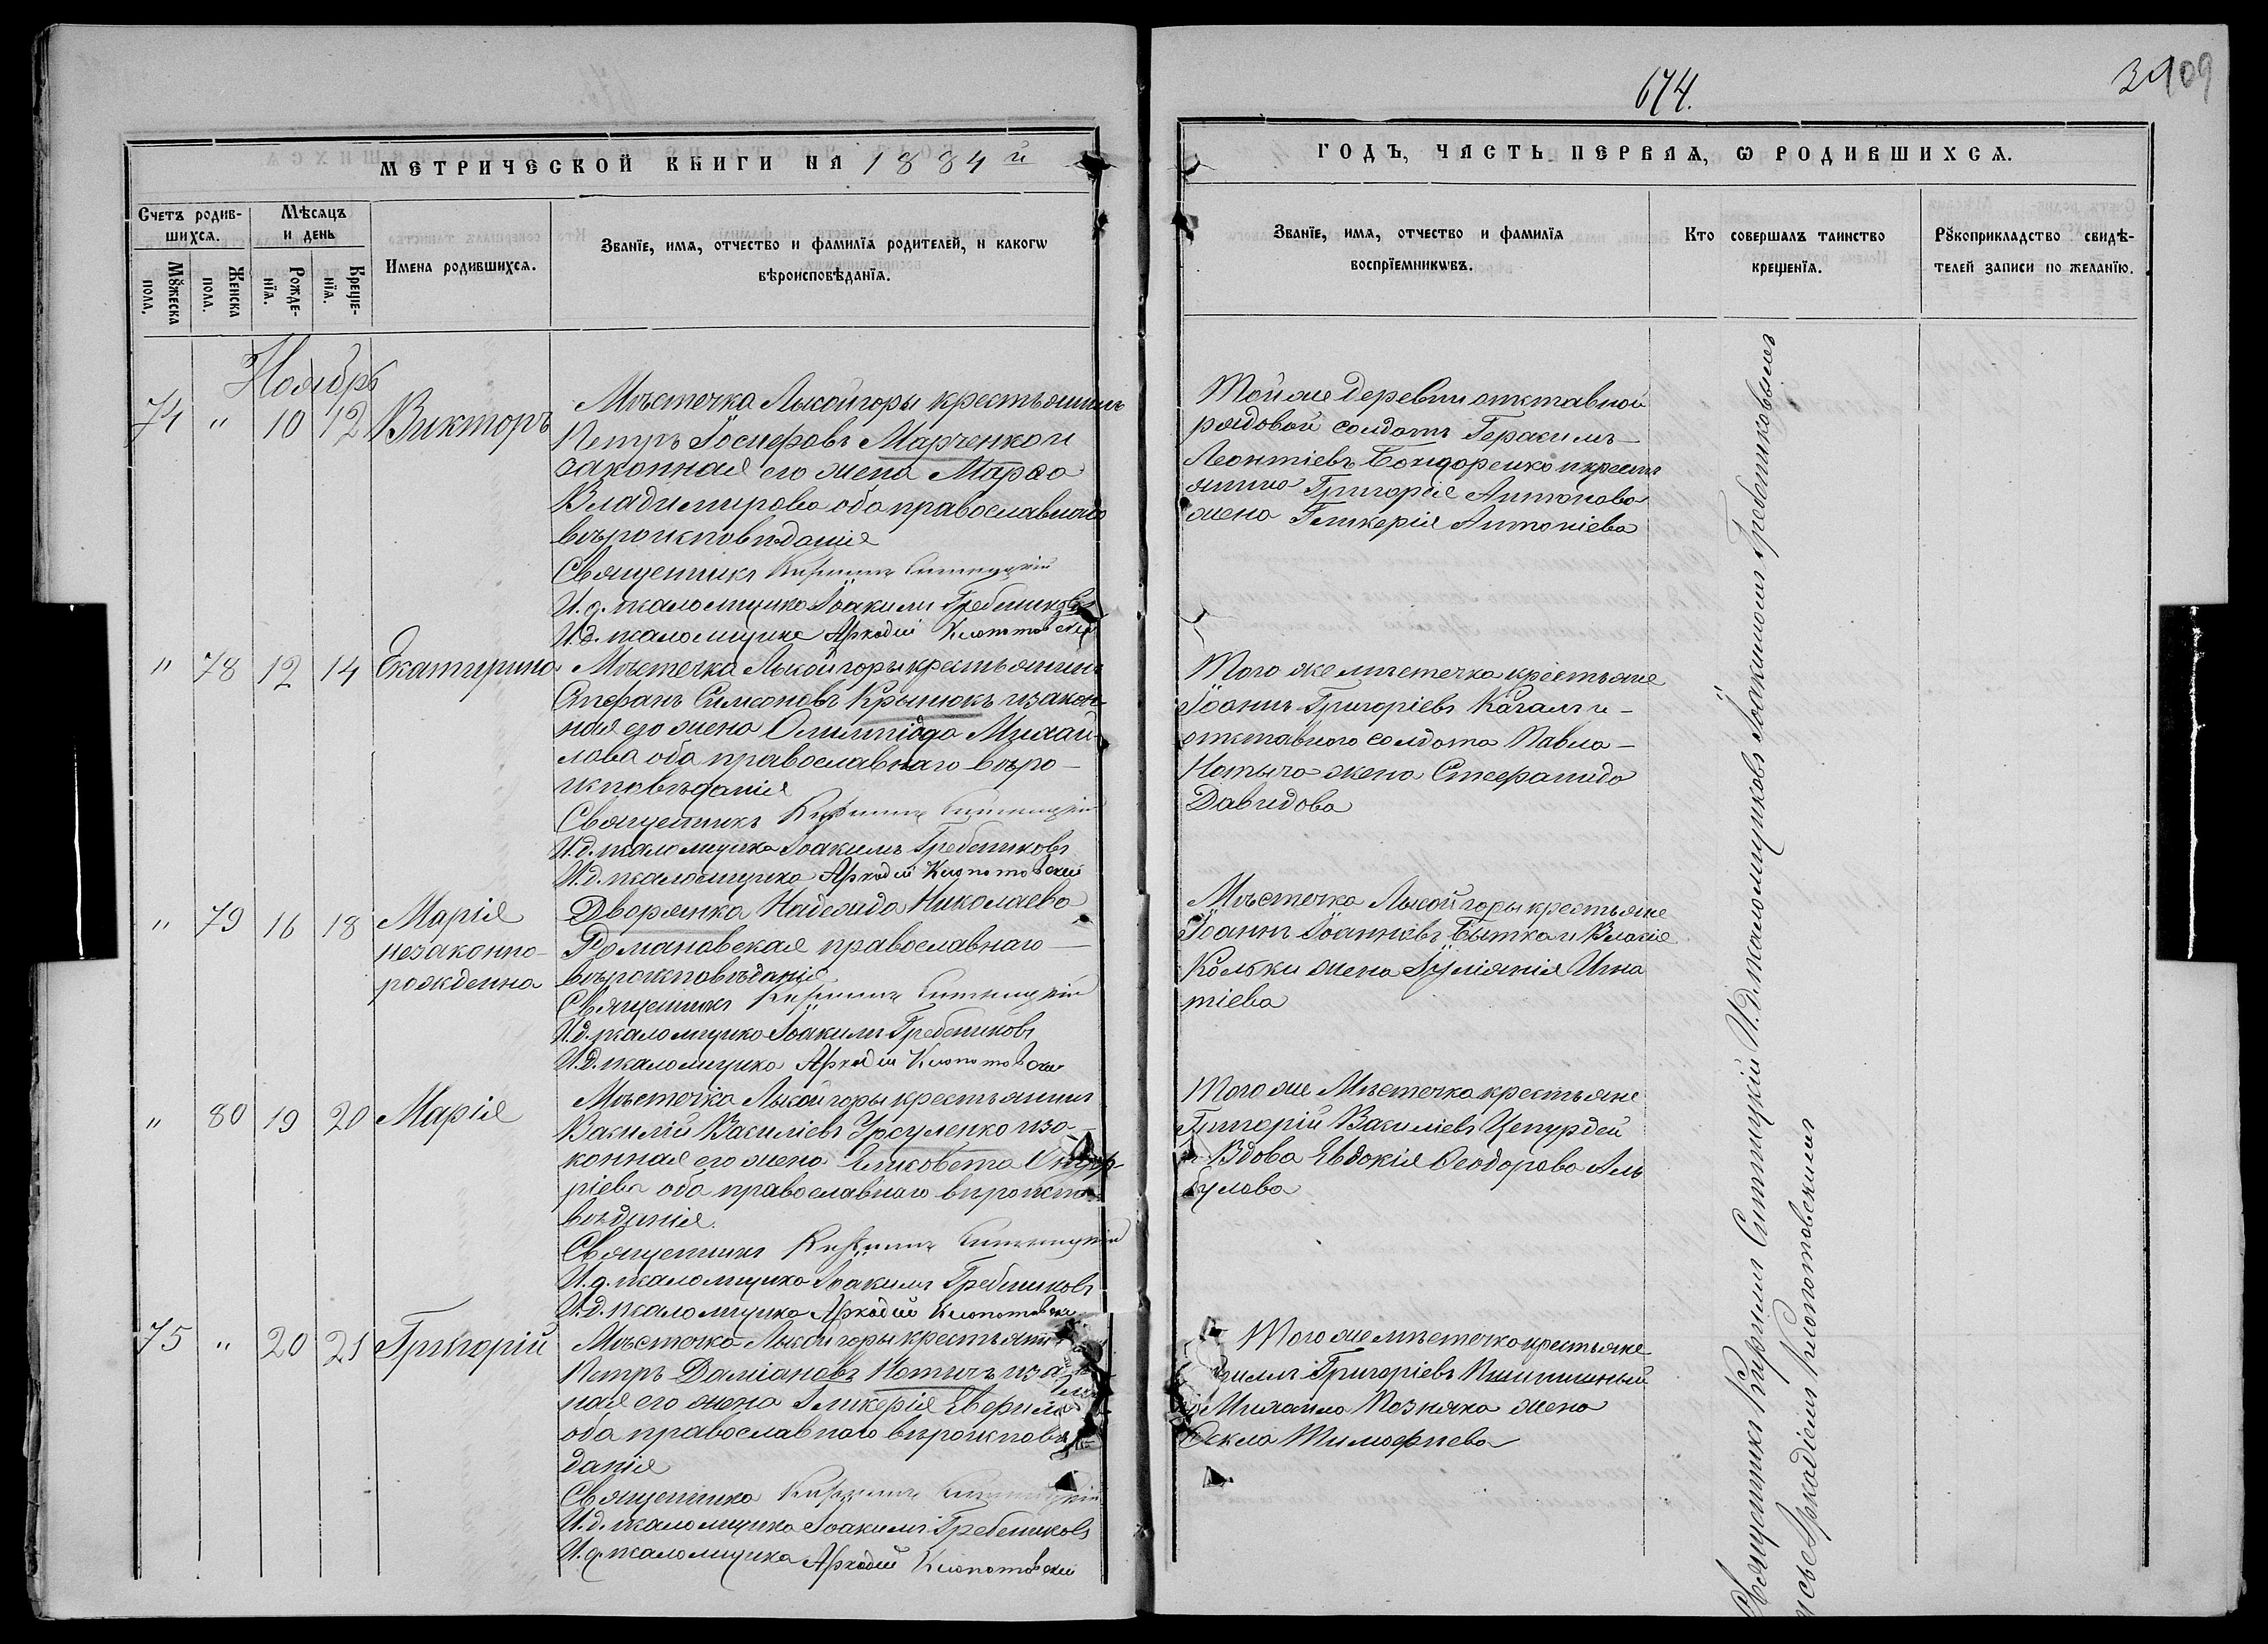 674.
3909
МЕТРИЧЕСКОЙ КНИГИ НА 1884 й
ГОДЪ, ЧАСТЬ ПЕРВАЯ, Ѡ РОДИВШИХСЯ.
Счетъ родив-
шихся.
Мѣсяцъ
и день
Мꙋжеска
пола.
Женска
пола.
Рожде-
нїя.
Креще-
нїя.
Имена родившихся.
Званїе, имя, отчество и фамилїя родителей, и какогѡ
вѣроисповѣданїя.
Званїе, имя, отчество и фамилїя
воспрїемникѡвъ.
Кто совершалъ таинство
крещенїя.
Рꙋкоприкладство свидѣ-
телей записи по желанїю.
Ноябрь
74 " 10 12 Викторъ
Мѣстечка Лысойгоры крестьянинъ
Петръ Іосифовъ Марченко и
законная его жена Марѳа
Владимирова оба православнаго
вѣроисповѣданія
Священникъ Кирилъ Ситницкій
И.д. псаломщика Іоакимъ Гребениковъ
И.д. псаломщика Аркадій Клопотовскій
Той же деревни отставной
рядовой солдатъ Герасимъ
Леонтіевъ Бондаренко и крестья
янина Григорія Антонова
жена Гликерія Антоніева
" 78 12 14 Екатирина
Мѣстечка Лысойгоры крестьянинъ
Стефанъ Симеоновъ Крынюкъ и закон-
ная его жена Олимпіада Михай-
лова оба православнаго вѣро-
исповѣданія
Священникъ Кирилъ Ситницкій
И.д. псаломщика Іоакимъ Гребениковъ
И.д. псаломщика Аркадій Клопотовскій
Того же мѣстечка крестьяне
Іоаннъ Григоріевъ Кагалъ и
отставного солдата Павла
Нотыча жена Стефанида
Давидова
" 79 16 18 Марія
незаконно-
рожденна
Дворянка Надежда Николаева
Романовская православнаго
вѣроисповѣданія
Священникъ Кирилъ Ситницкій
И.д. псаломщика Іоакимъ Гребениковъ
И.д. псаломщика Аркадій Клопотовскій
Мѣстечка Лысойгоры крестьяне
Іоаннъ Іоанновъ Бытка и Власія
Кольки жена Іуліанія Игна
тіева
" 80 19 20 Марія
Мѣстечка Лысойгоры крестьянинъ
Василій Васильевъ Урсуленко и за-
конная его жена Елисовета
ріева оба православнаго вѣроиспо
вѣданія.
Священникъ Кирилъ Ситницкій
И.д. псаломщика Іоакимъ Гребениковъ
И.д. псаломщика Аркадій Клопотовскій
Того же Мѣстечка крестьяне
Григорій Василіевъ Цепурдей
и Вдова Евдокія Ѳеодорова
75 " 20 21 Григорій
Мѣстечка Лысойгоры крестьянинъ
Петръ Даміановъ Нотычъ и за
ная его жена Гликерія
оба православнаго вѣроисповѣ
данія
Священника Кирилъ Ситницкій
И.д. псаломщика Іоакимъ Гребениковъ
И.д. псаломщика Аркадій Клопотовскій
Того же мѣстечка крестьяне
Григоріевъ
и Михаила Позняка жена
Ѳекла Тимофиева
Священникъ Кириллъ Ситницкій И.д. псаломщиковъ Іоакимомъ Гребениковымъ
Аркадіемъ Клопотовскимъ